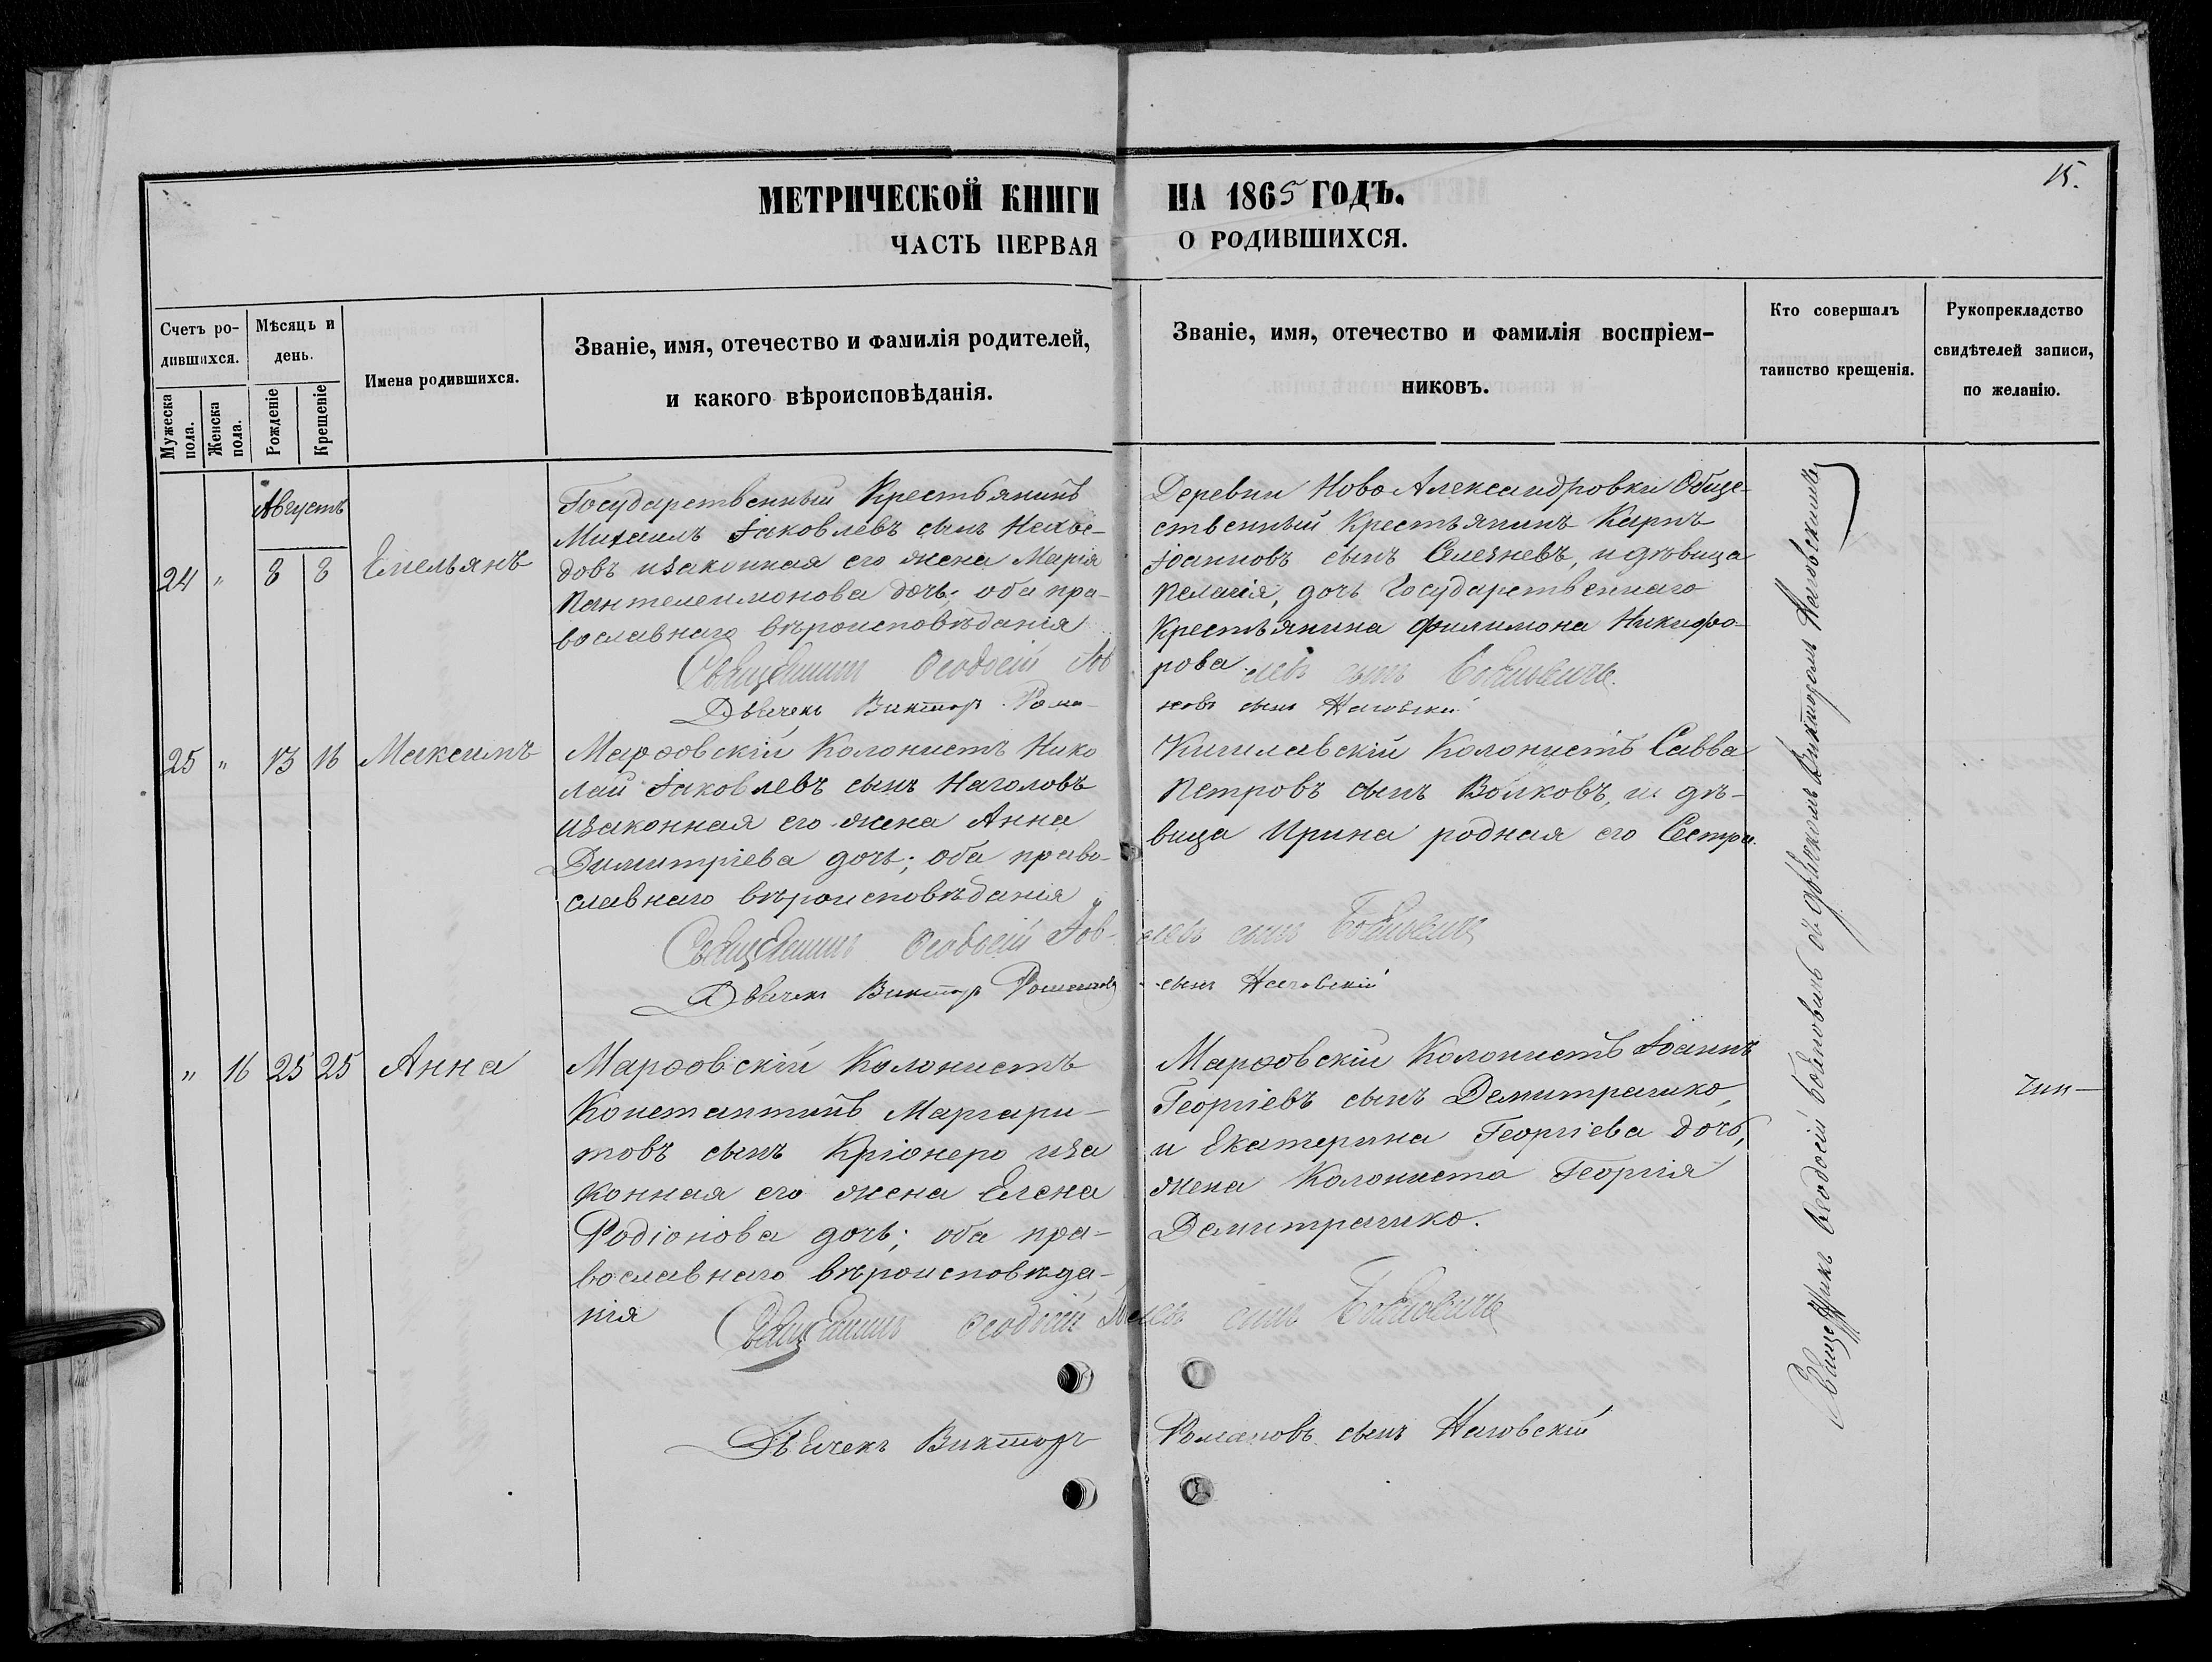 15.
МЕТРИЧЕСКОЙ КНИГИ НА 1865 ГОДЪ.
ЧАСТЬ ПЕРВАЯ О РОДИВШИХСЯ.
Счетъ ро-
дившихся.
Мужеска пола.
Женска пола.
Мѣсяцъ и
день.
Рожденіе
Крещеніе
Имена родившихся.
Званіе, имя, отечество и фамилія родителей,
и какого вѣроисповѣданія.
Званіе, имя, отечество и фамилія воспріем-
никовъ.
Кто совершалъ
таинство крещенія.
Рукоприкладство
свидѣтелей записи,
по желанію.
Августъ
24 " 8 8 Емельянъ
Государственный Крестьянинъ
Михаилъ Іаковлевъ сынъ
довъ изаконная его жена Марія
Пантелеимонова дочь; оба пра-
вославнаго вѣроисповѣданія
Деревни Ново Александровки Обще-
ственный Крестьянинъ Карпъ
Іоанновъ сынъ Селезневъ, и дѣвица
Пелагія, дочь Государственнаго
Крестьянина Филимона Никифо-
рова
Священникъ Ѳеодосій Іов
левъ сынъ Бойновичъ
Дьячекъ Викторъ Рома-
новъ сынъ Наговскій
25 " 13 16 Максимъ
Марѳовскій Колонистъ Нико
лай Іаковлевъ сынъ Наголовъ
изаконная его жена Анна
Димитріева дочь; оба право-
славнаго вѣроисповѣданія
Колонистъ Савва
Петровъ сынъ Волковъ, и дѣ-
вица Ирина родная его Сестра.
Священникъ Ѳеодосій Іов-
левъ сынъ Бойновичъ
Дьячекъ Викторъ Романовъ
сынъ Наговскій
" 16 25 25 Анна
Марѳовскій Колонистъ
Константинъ Маргари-
товъ сынъ Кріонеро иза
конная его жена Елена
Родіонова дочь; оба пра-
вославнаго вѣроисповѣда-
нія
Марѳовскій Колонистъ Іоаннъ
Георгіевъ сынъ Демитрашко,
и Екатерина Георгіева дочь,
жена Колониста Георгія
Демитрашко.
Священникъ Ѳеодосій Іовлевъ сынъ Бойновичъ
Дьячекъ Викторъ Романовъ сынъ Наговскій
Священникъ Ѳеодосій Бойновичъ съ дьячкомъ Викторомъ Наговскимъ